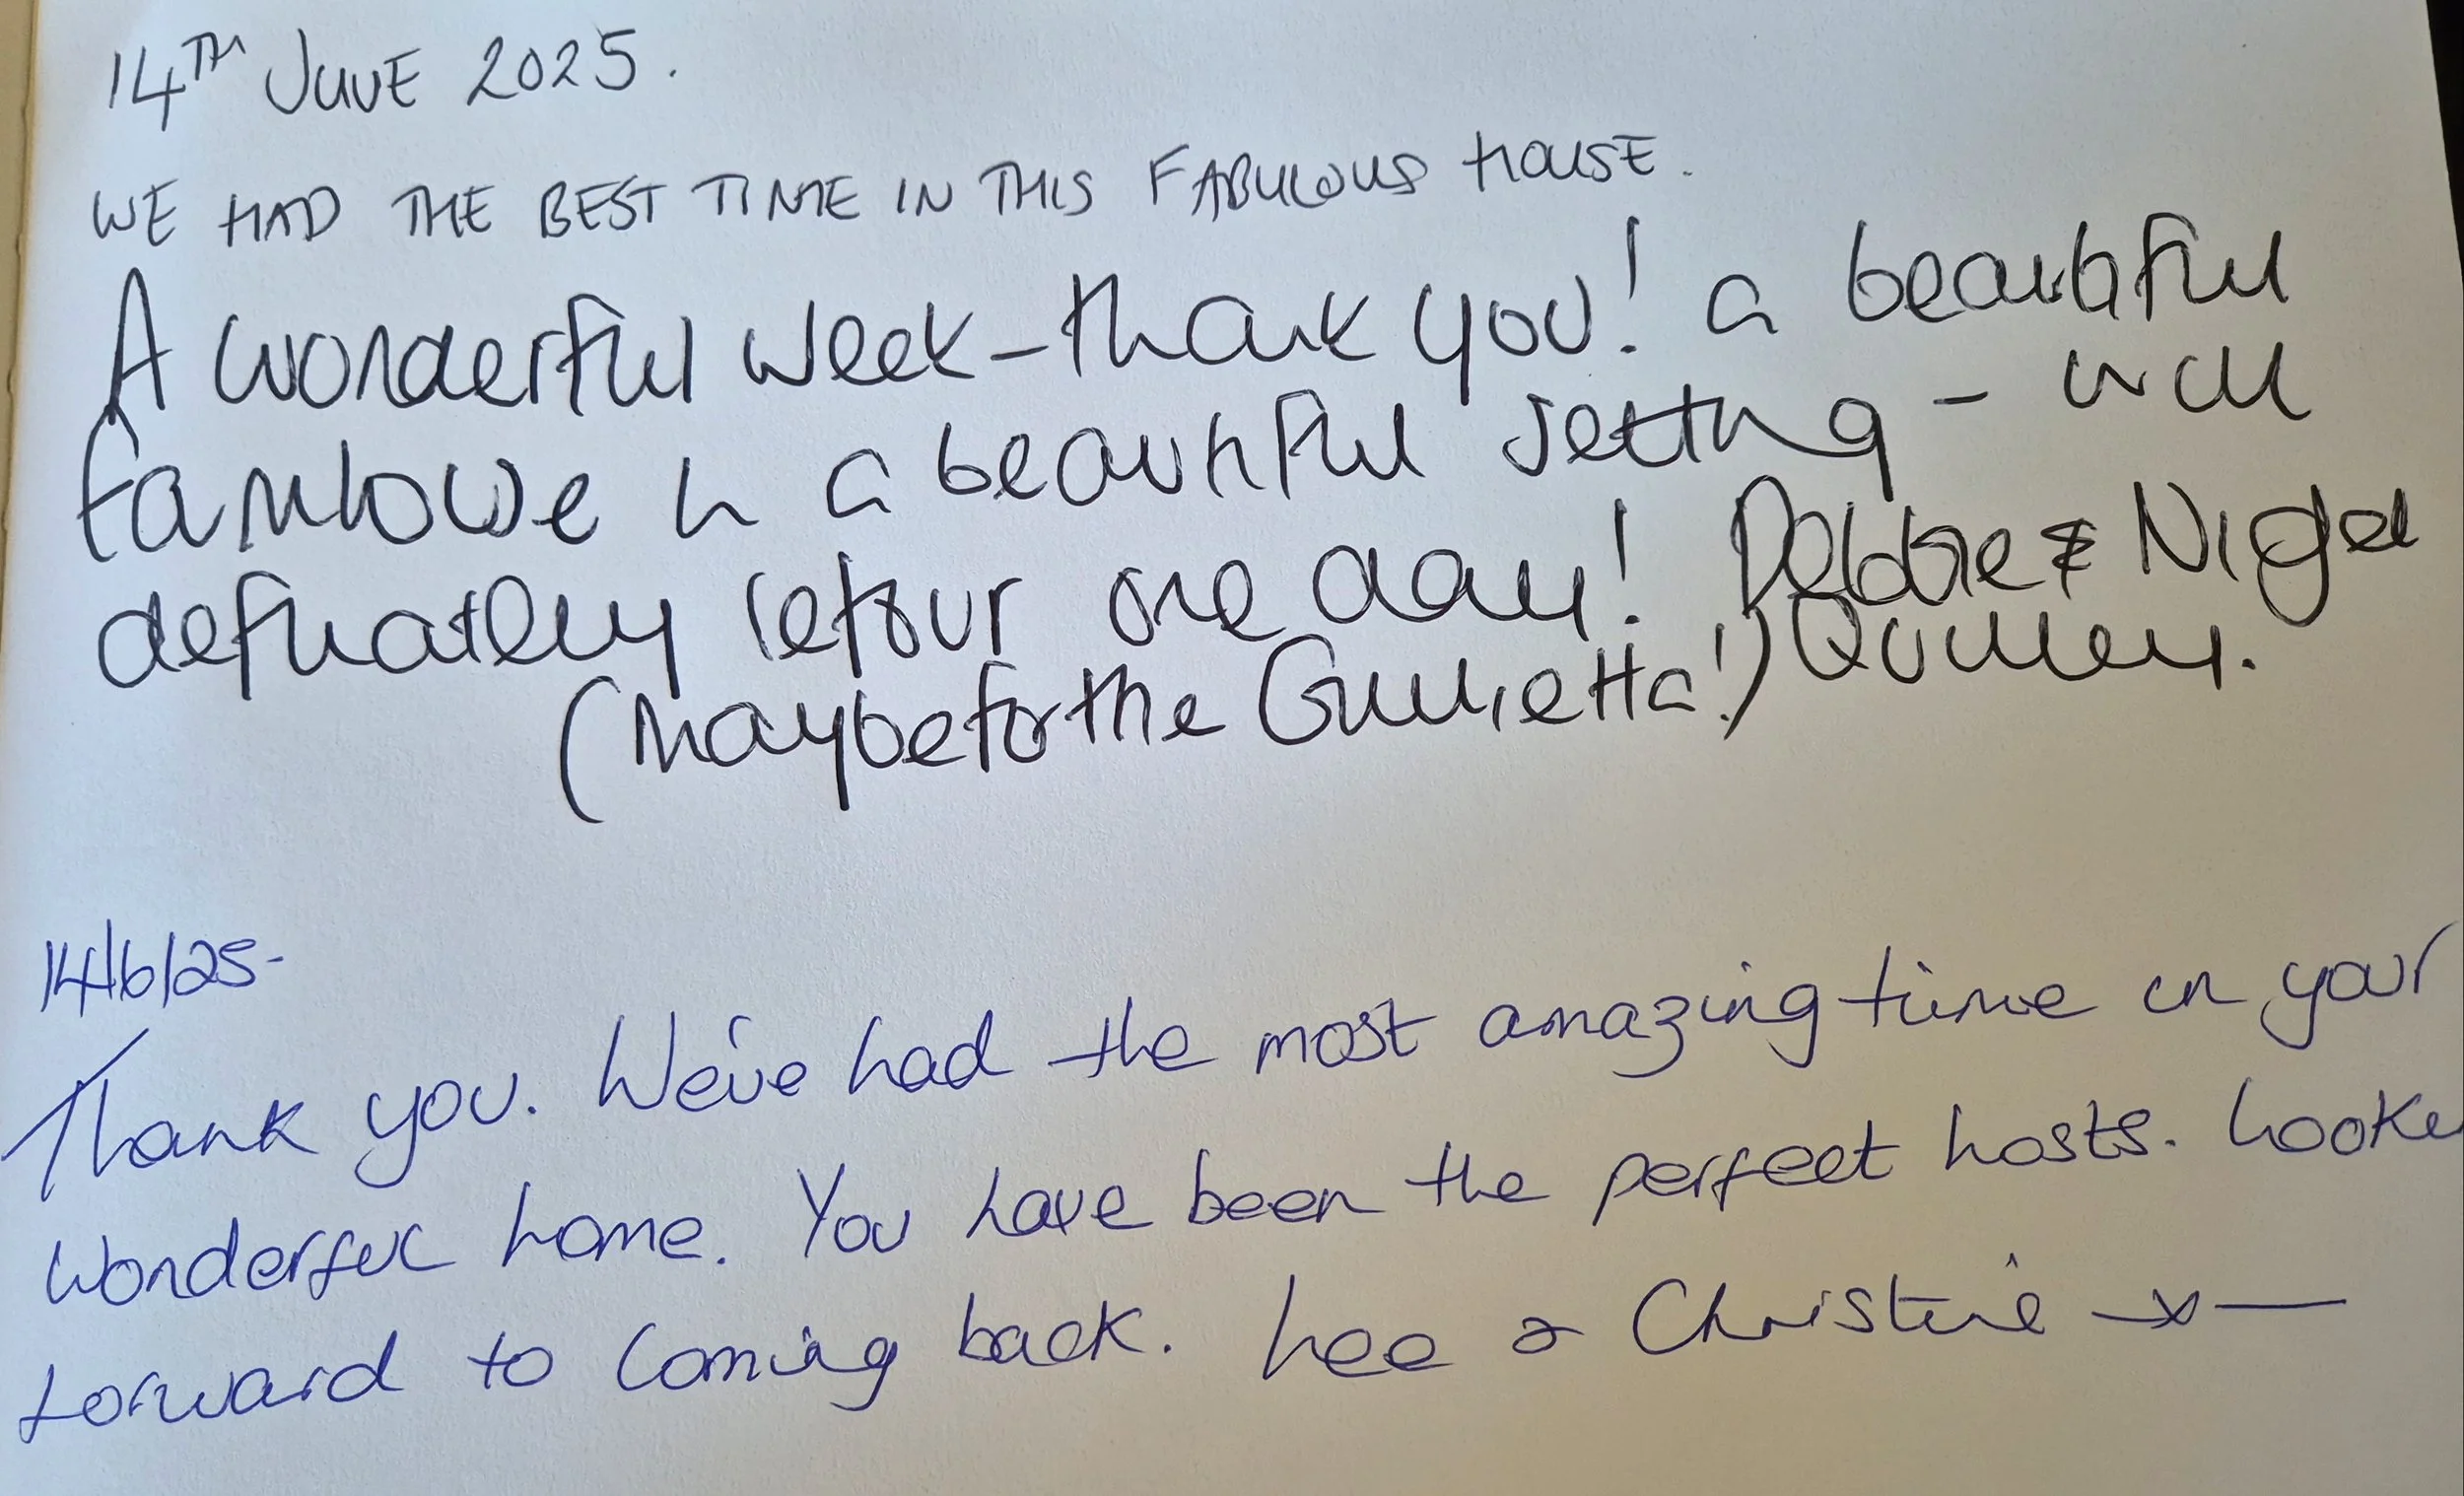 14TH JUNE 2025.
WE HAD THE BEST TIME IN THIS FABULOUS HOUSE.
A wonderful week - thank you! a beautiful
farmhouse in a beautiful setting - will
definately retour one day! Debbie & Nigel
(Maybe for the Giulietta!) Quilley.
14/6/25-
Thank you. We've had the most amazing time in your
wonderful home. You have been the perfect hosts. Looke
forward to coming back. Lee & Christine x